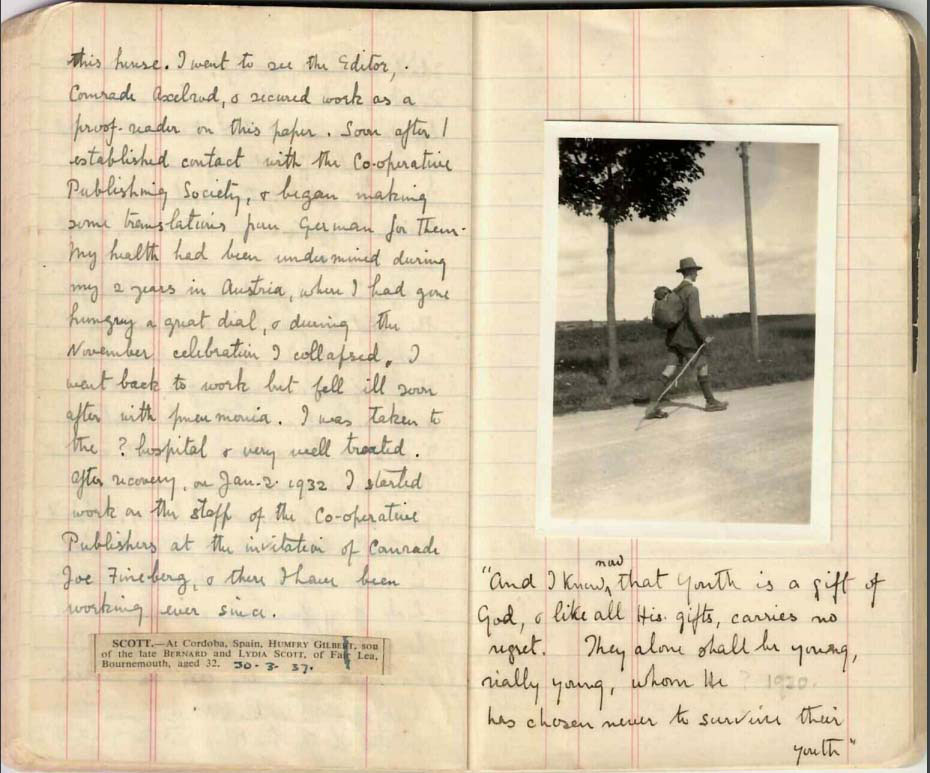 this house. I went to see the Editor,
Comrade Axelrod, & secured work as a
proof-reader on this paper. Soon after I
established contact with the Co-operative
Publishing Society, & began making
some translations from German for them.
My health had been undermined during
my 2 years in Austria, where I had gone
hungry a great deal, & during the
November celebration I collapsed. I
went back to work but fell ill soon
after with pneumonia. I was taken to
the ? hospital & very well treated.
After recovery, on Jan. 2. 1932 I started
work on the staff of the Co-operative
Publishers at the invitation of Comrade
Joe Fineberg, & there I have been
working ever since.
SCOTT.—At Cordoba, Spain, HUMFRY GILBERT, son
of the late BERNARD and LYDIA SCOTT, of Fair Lea,
Bournemouth, aged 32. 30.3.37.
"And I know now that Youth is a gift of
God, & like all His gifts, carries no
regret. They alone shall be young,
really young, whom He ? 1920.
has chosen never to survive their
youth"